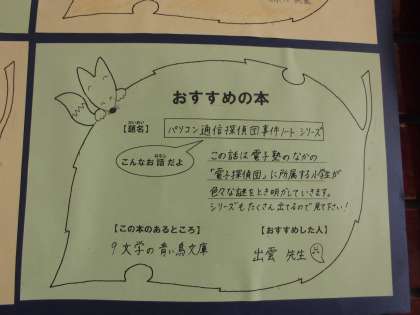 おすすめの本
【題名】
パソコン通信探偵団事件ノートシリーズ
こんなお話だよ
この話は電子塾のなかの
「電子探偵団」に所属する小学生が
色々な謎をとき明かしていきます。
シリーズもたくさん出てるので見て下さい!
【この本のあるところ】
9文学の青い鳥文庫
【おすすめした人】
出雲 先生